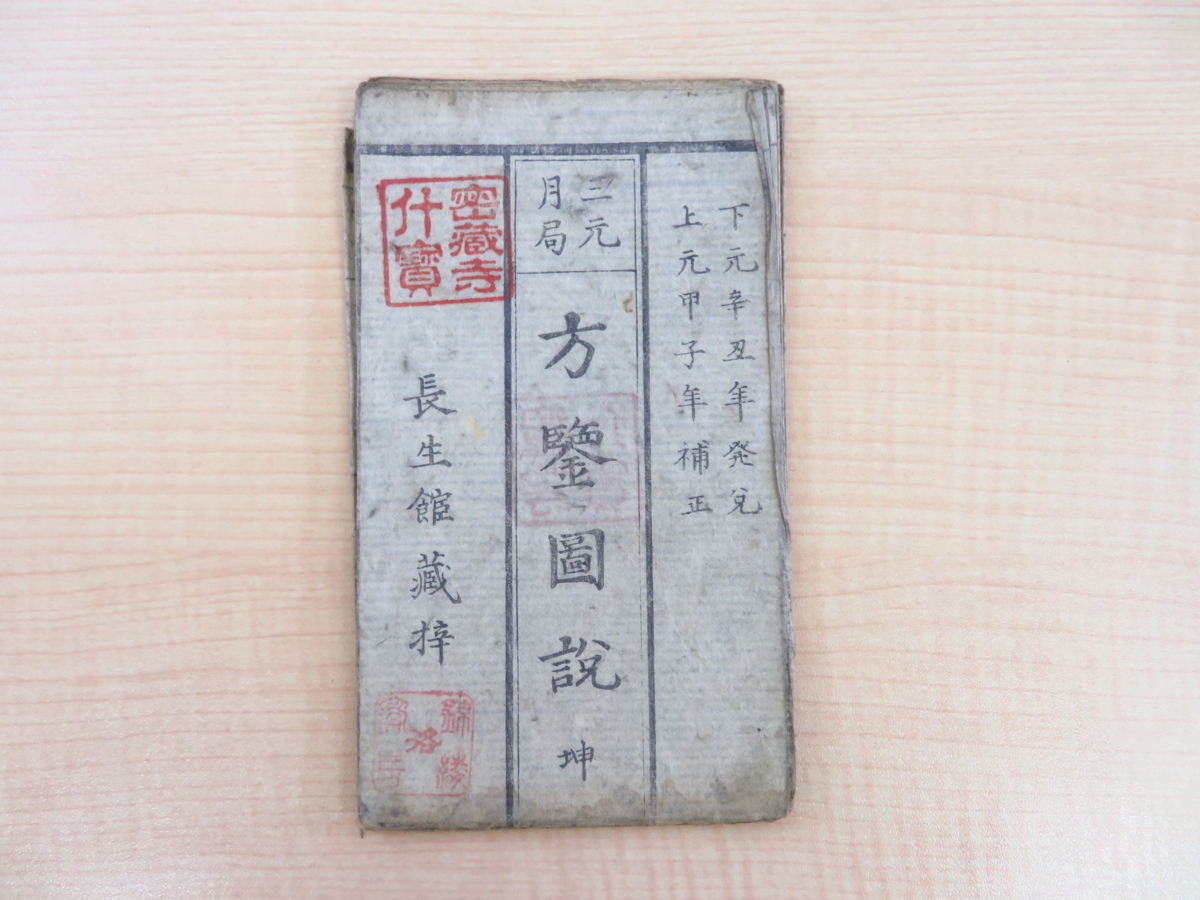 下元辛丑年発兌
上元甲子年補正
三元
月局
方鑒圖說 坤
密藏寺
什寶
長生館藏梓